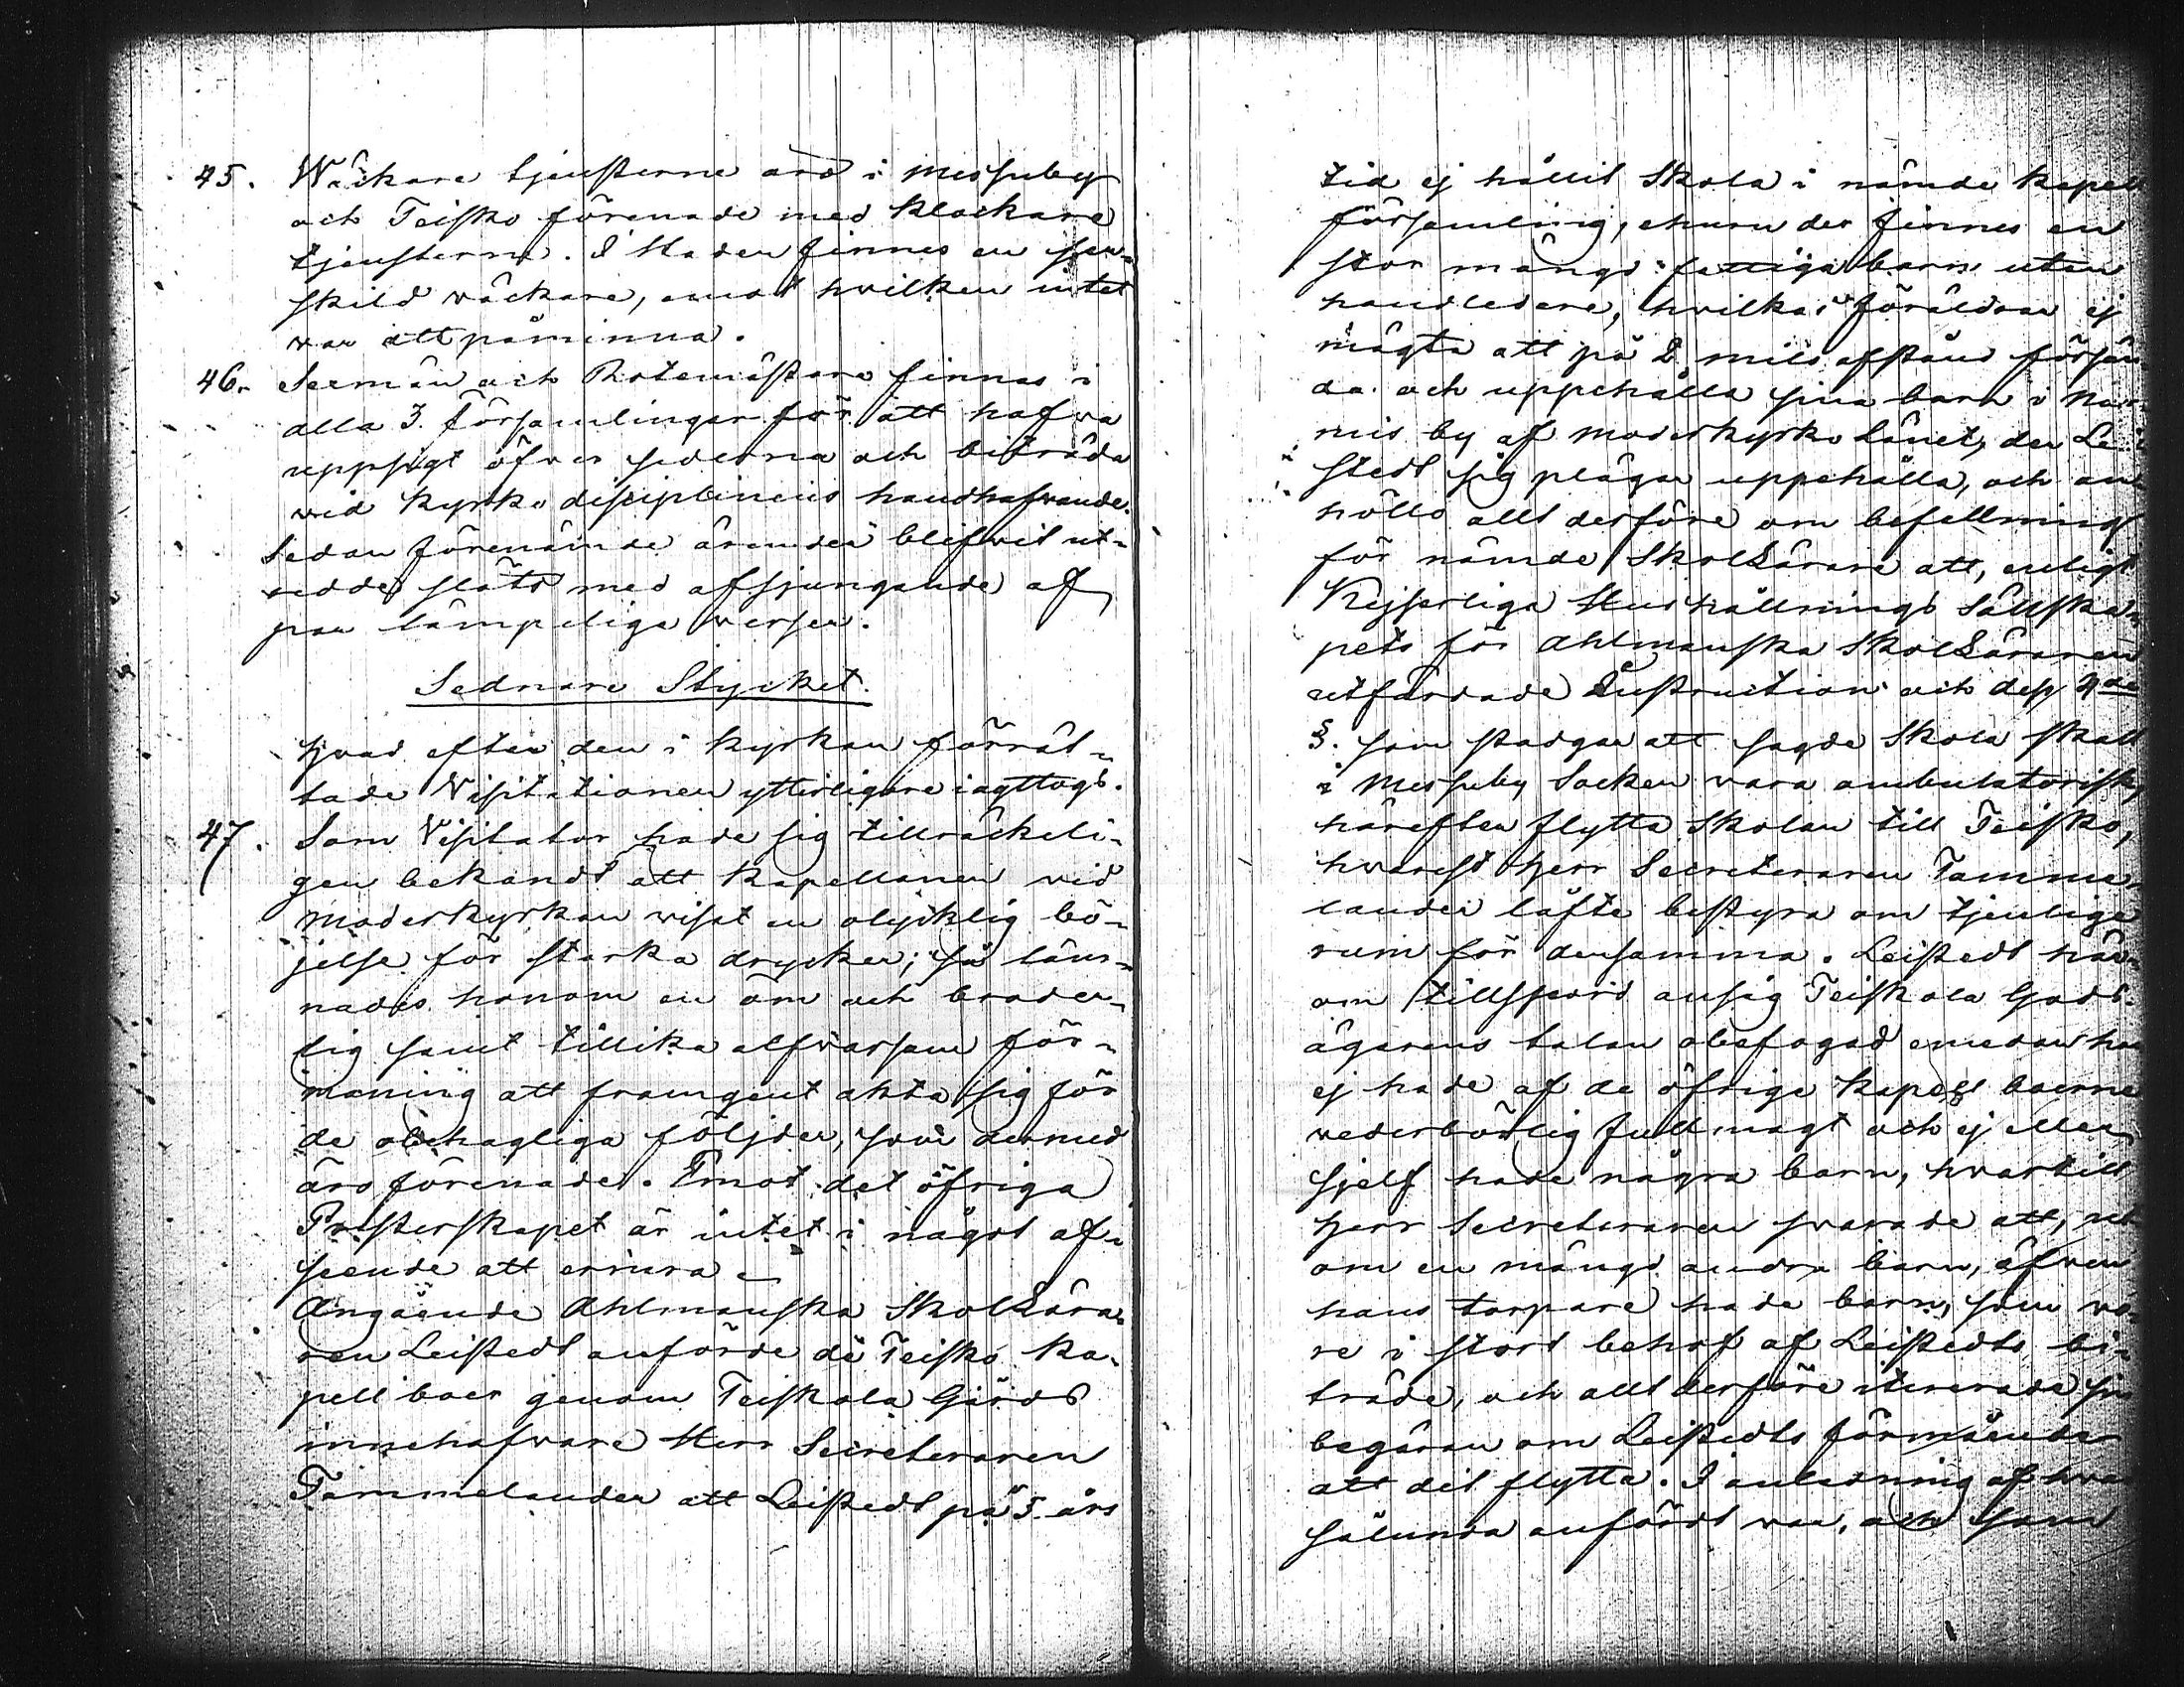 45. Wäckare tjensterne äro i Messuby
och Teisko förenade med klockare
tjensterne. I Staden finnes en sär-
skild wäckare, emot hvilken intet
var att påminna.
46. Sexmän och Rotemästare finnas i
alla 3. församlingar för att hafva
uppsigt öfver sederna och biträda
vid kyrko disciplinens handhafvande.
Sedan förenämde ärender blifvit ut-
redde slöts med afsjungande af
par lämpeliga verser.
Sednare Stycket.
Hvad efter den i kyrkan förrät-
tade Visitationen ytterligare iagttogs.
47. Som Visitator hade sig tillräckeli-
gen bekandt att kapellanen vid
moderkyrkan visat en olycklig bö-
jelse för starka drycker; så läm-
nades honom en öm och broder-
lig samt tillika alfvarsam för-
maning att framgent akta sig för
de obehagliga följder, som dermed
äro förenade. Emot det öfriga
Presterskapet är intet i något af-
seende att errinra.
Angående Ahlmanska Skollära-
ren Leistedt anförde de Teisko ka-
pell boer genom Teiskola Gårds
innehafvare Herr Secreteraren
Tammelander att Leistedt på 5. års
tid ej hållit Skola i nämde kapell
församling, ehuru der finnes en
stor mängd fattiga barn utan
handledare, hvilkas föräldrar ej
mägta att på 2 mils afstånd försän-
da och uppehålla sina barn i
by af moderkyrko länet, der Lei-
stedt sig plägar uppehålla, och an-
hölls allt derföre om befallning
för nämde Skollärare att, enligt
Kejserliga Hushållnings Sällska-
pets för Ahlmanska Skolläraren
utfärdade Instruction och dess 2de
§. som stadgar att sagde Skola skall
i Messuby Socken vara ambulatorisk,
härefter flytta Skolan till Teisko,
hvarest Herr Secreteraren Tamme-
lander låfte bestyra om tjenlige
rum för densamma. Leistedt här-
om tillspord ansåg Teiskola Gods-
ägarens talan obefogad emedan han
ej hade af de öfrige kapell boerne
vederbörlig fullmagt och ej eller
sjelf hade några barn, hvartill
Herr Secreteraren svarade att, ut-
om en mängd andra barn, äfven
hans torpare hade barn, som vo-
re i stort behof af Leistedts bi-
träde, och allt derföre itererade sin
begäran om Leistedts förmående
att dit flytta. I anledning af hvad
sålunda anfördt var, och som